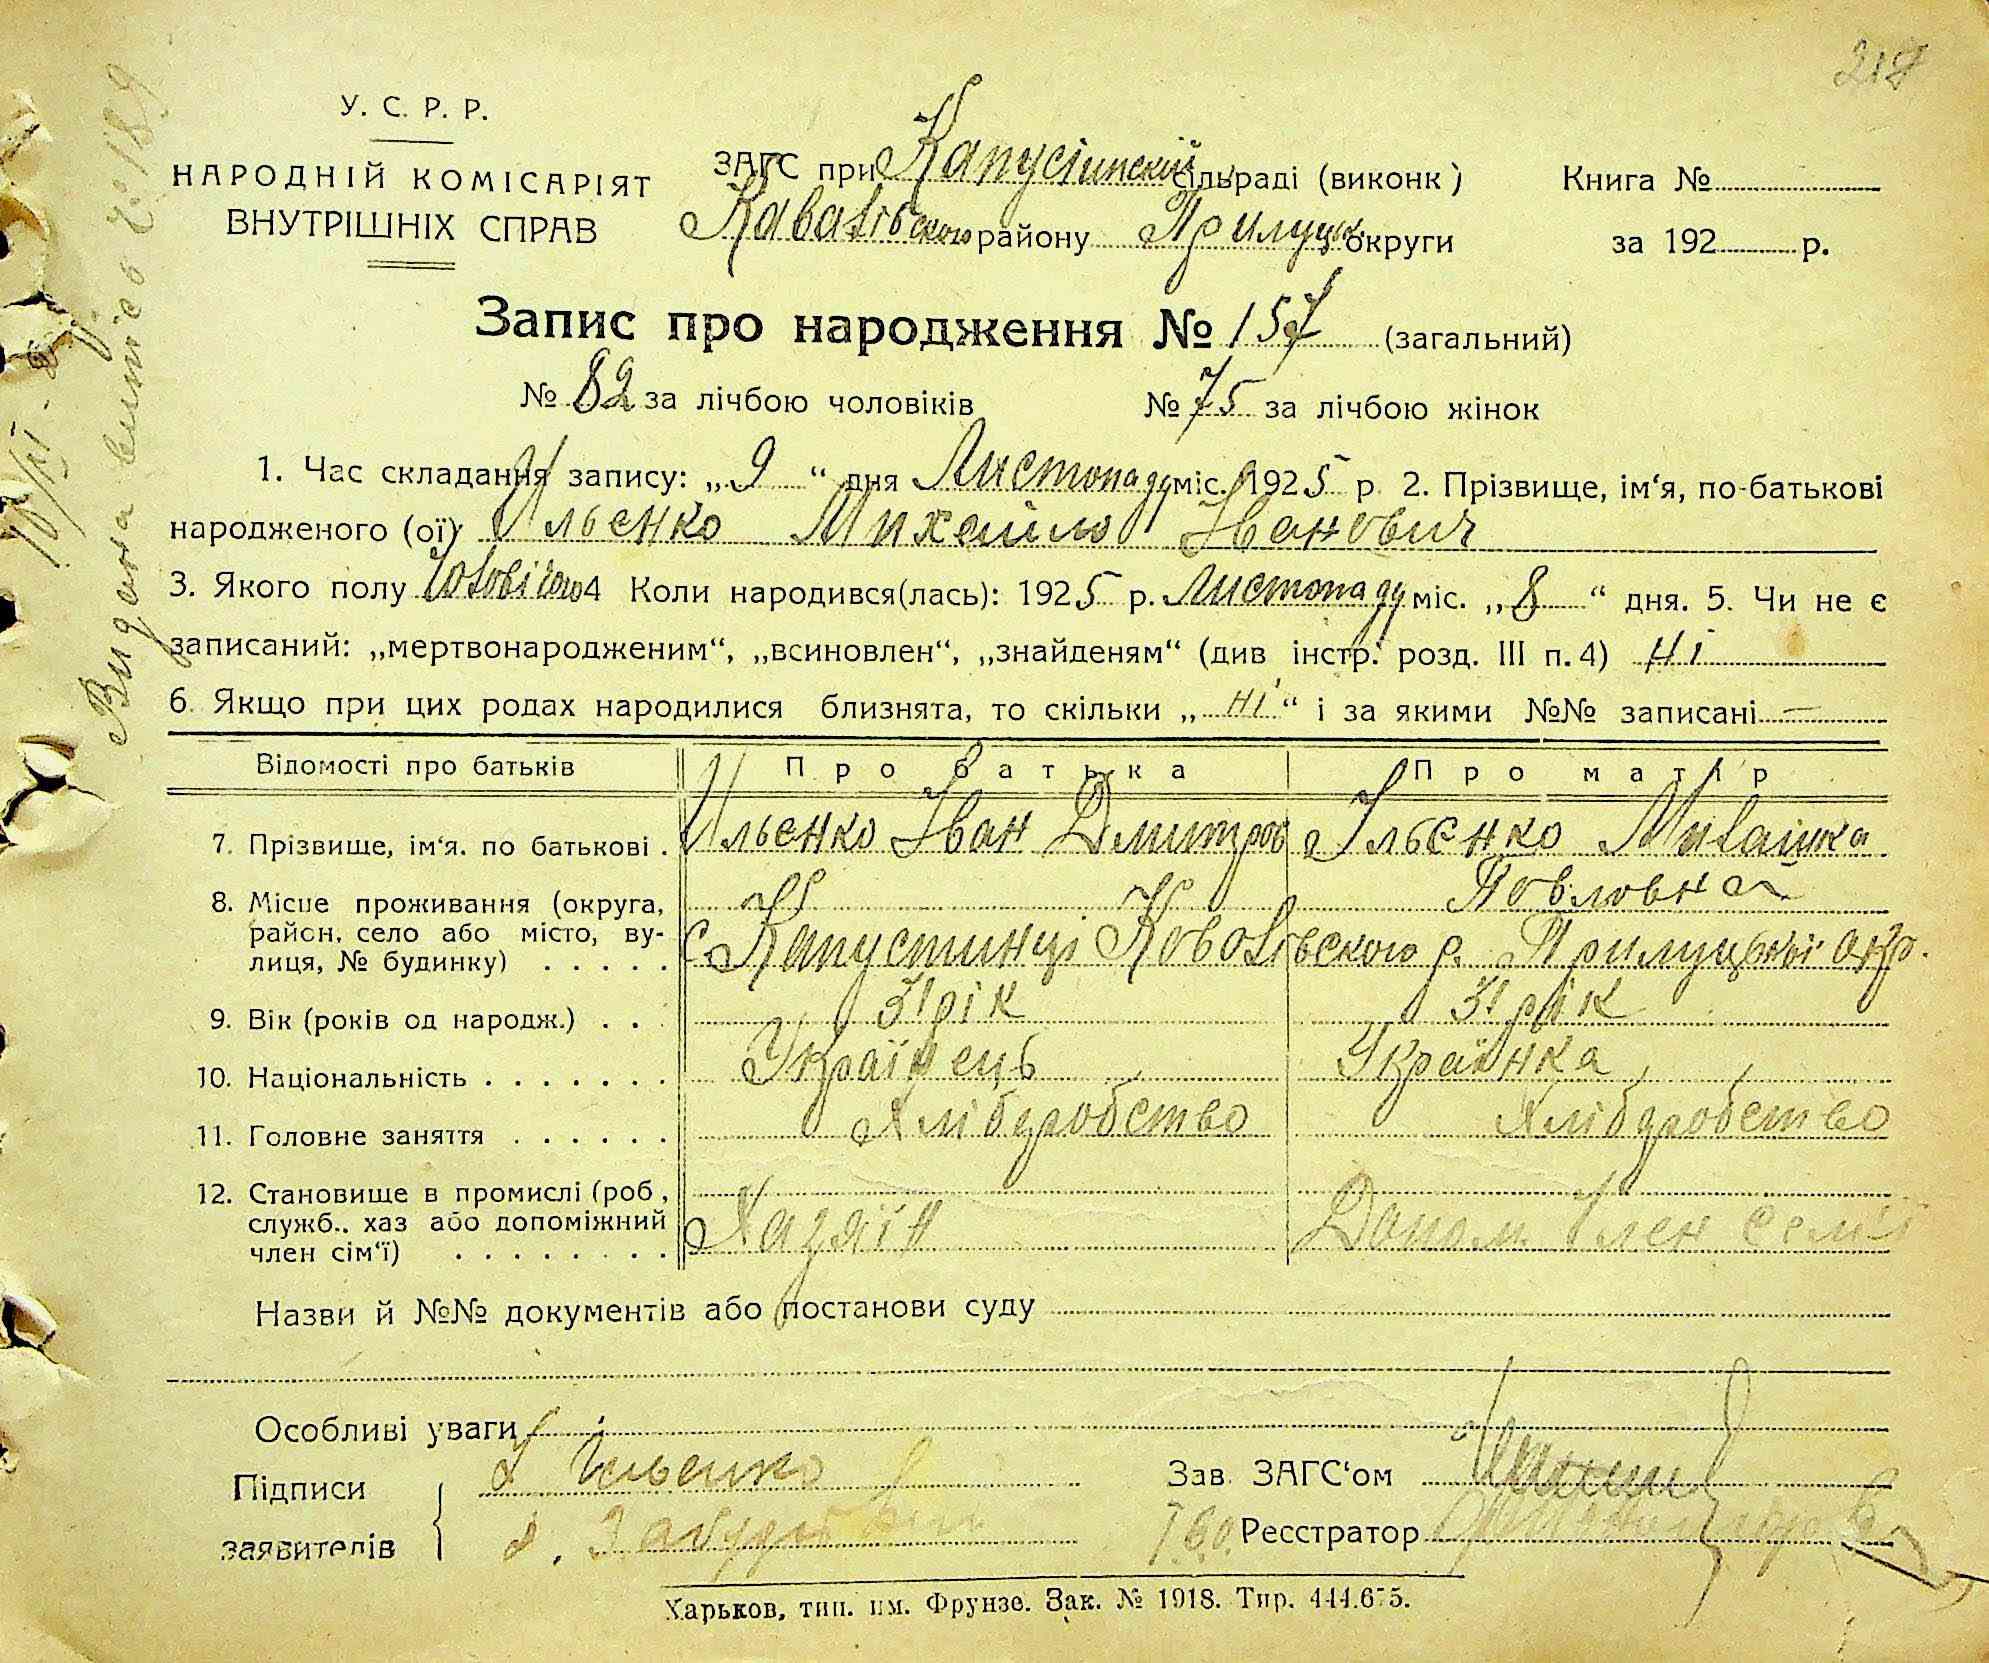 218
У. С. Р. Р.
НАРОДНІЙ КОМІСАРІЯТ
ВНУТРІШНІХ СПРАВ
ЗАГС при Капусінській сільраді (виконк)
Ковалівського району Прилуцьк. округи
Книга №
за 192 р.
Запис про народження № 157 (загальний)
№ 82 за лічбою чоловіків № 75 за лічбою жінок
1. Час складання запису: „9“ дня Листопаду міс. 1925 р. 2. Прізвище, ім‘я, по-батькові
народженого (ої) Ильєнко Михайло Іванович
3. Якого полу Чоловічого 4 Коли народився(лась): 1925 р. Листопаду міс. „8“ дня. 5. Чи не є
записаний: „мертвонародженим“, „всиновлен“, „знайденям“ (див інстр. розд. III п. 4) Ні
6. Якщо при цих родах народилися близнята, то скільки „ні“ і за якими №№ записані —
Відомості про батьків Про батька Про матір
7. Прізвище, ім‘я. по батькові . Ильєнко Іван Дмитров Ільєнко
Повловна
8. Місце проживання (округа,
район, село або місто, ву-
лиця, № будинку) . . . . . с. Капустинці Коволівського р. Прилуцької окр.
9. Вік (років од народж.) . . . 31 рік 31 рік
10. Національність . . . . . . . Українець Українка
11. Головне заняття . . . . . . Хлібуробство Хлібуробство
12. Становище в промислі (роб,
служб., хаз або допоміжний
член сім‘ї) . . . . . . . . Хазяїн Допом. Член семії
Назви й №№ документів або постанови суду
Особливі уваги
Підписи
заявителів
Ильенко
Зав. ЗАГС‘ом
Т.в.о. Реєстратор
Харьков, тип. им. Фрунзе. Зак. № 1918. Тир. 444.675.
Видана випись 189